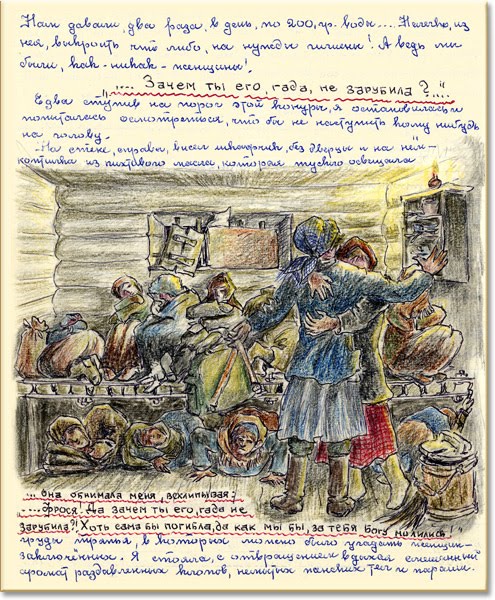 Нам давали, два раза, в день, по 200, гр. воды.... Нелегко, из
неё, выкроить что либо, на нужды гигиены! А ведь мы
были, как-никак-женщины!
„.... Зачем ты его, гада, не зарубила?...."
Едва ступив на порог этой конуры, я остановилась и
попыталась осмотреться, что бы не наступить кому нибудь
на голову.
На стене, справа, висел шкафчик, без дверцы и на нём-
коптилка из пихтового масла, которая тускло освещала
„... Она обнимала меня, всхлипывая:
„.... Фрося! Да зачем ты его, гада не
зарубила?! Хоть сама бы погибла, да как мы бы, за тебя Богу молились!"
груды тряпья, в которых можно было угадать женщин-
заключённых. Я стояла, с отвращением вдыхая смешанный
аромат раздавленных клопов, немытых